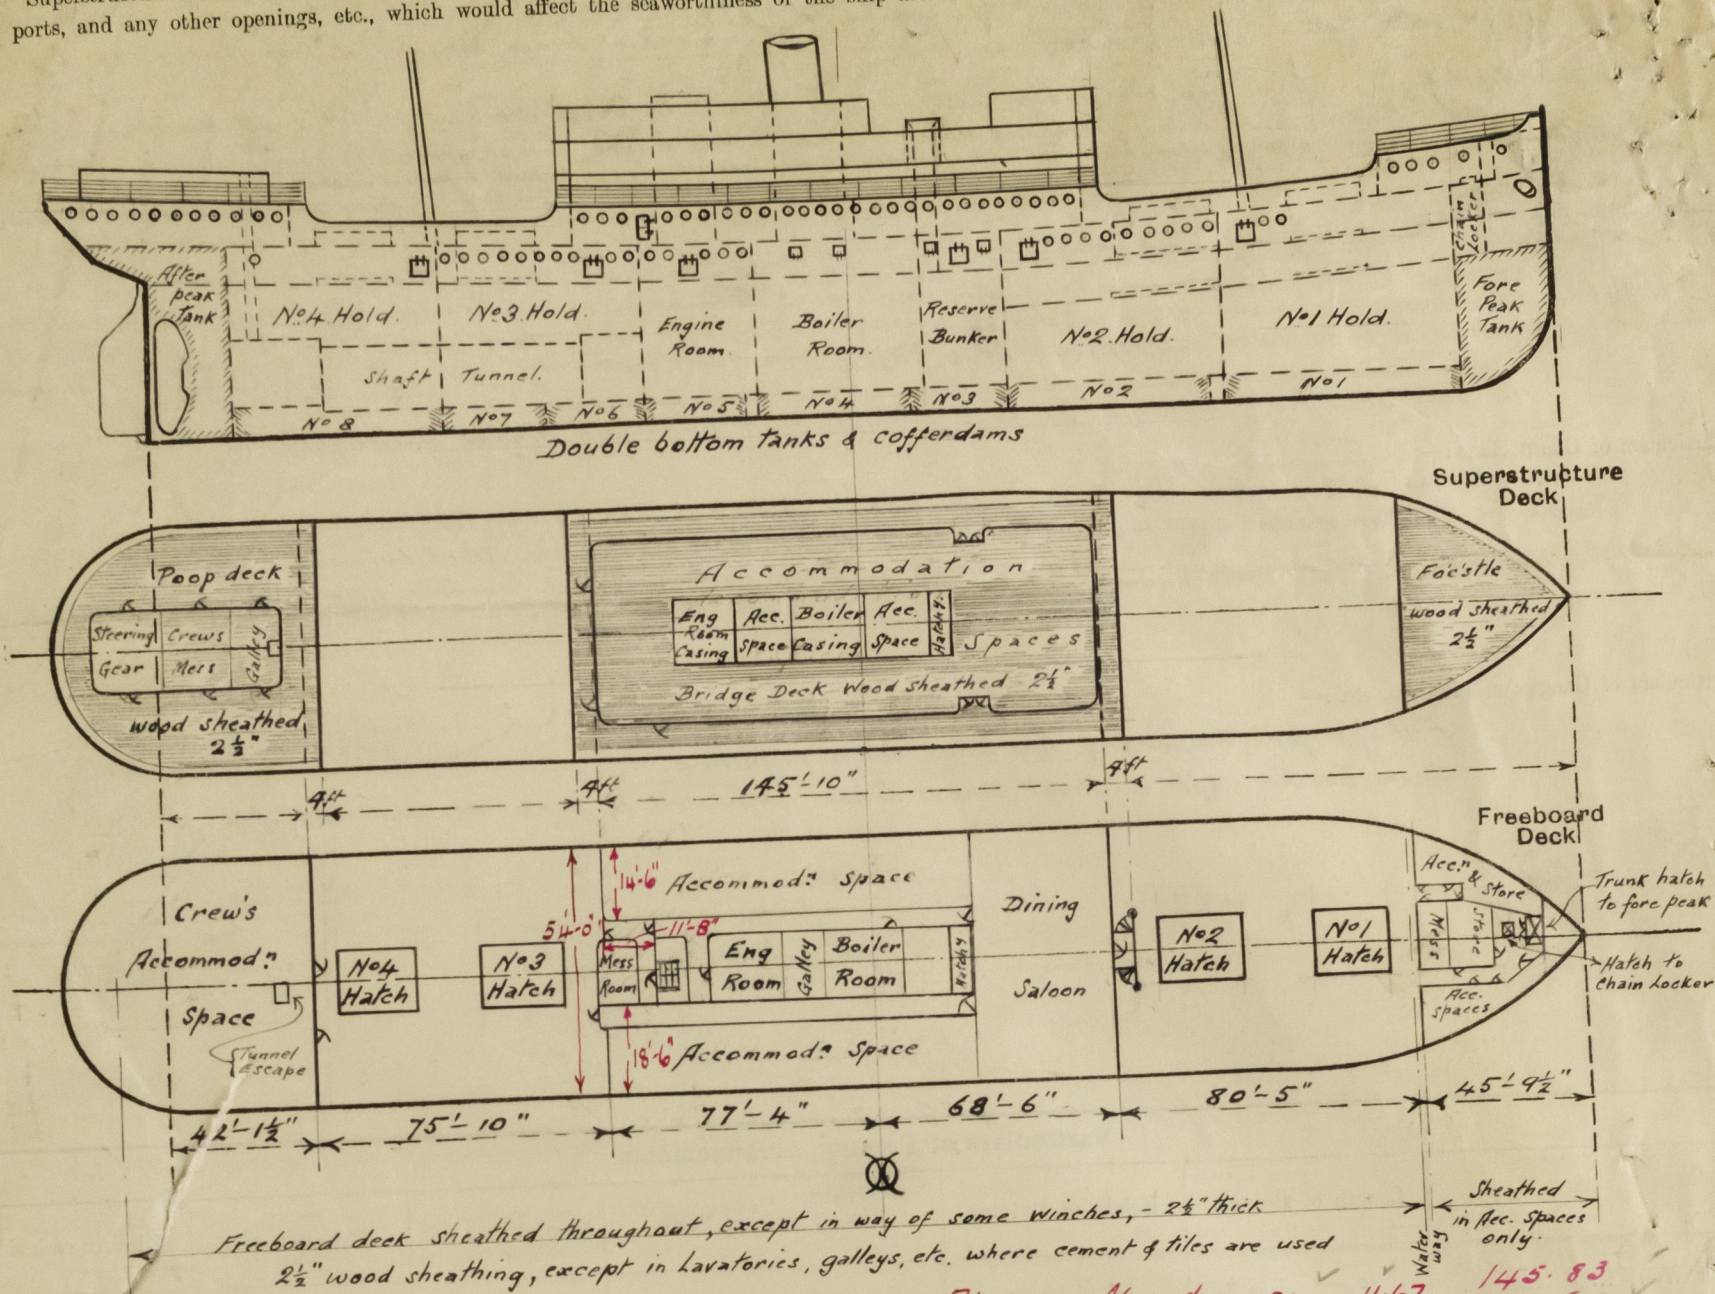 ports, and any other openings, etc., which would affect the seaworthiness of the ship
After
peak
Tank
No4 Hold.
No3 Hold.
Engine
Room.
Boiler
Room.
Reserve
Bunker
No2 Hold.
No1 Hold.
Chain
Locker
Fore
Peak
Tank
Shaft Tunnel.
No 8
No7
No6
No5
No4
No3
No2
No1
Double bottom tanks & cofferdams
Superstructure
Deck
Poop deck
Steering
Gear
Crews
Mess
Galley
wood sheathed
2½"
Accommodation
Spaces
Eng
Room
Casing
Acc.
Space
Boiler
Casing
Acc.
Space
Hatchy.
Bridge Deck Wood sheathed 2½"
Fo'c'stle
wood sheathed
2½"
4ft
4ft
145'-10"
4ft
Freeboard
Deck
Crew's
Accommodn
Space
Tunnel
Escape
No4
Hatch
No3
Hatch
54'-0"
14'-6"
11'-8"
18'-6"
Accommodn Space
Mess
Room
Eng
Room
Galley
Boiler
Room
Hatchy
Accommodn Space
Dining
Saloon
No2
Hatch
No1
Hatch
Accn
& Store
Mess
Store
Acc.
Spaces
Trunk hatch
to fore peak
Hatch to
Chain Locker
42'-1½"
75'-10"
77'-4"
68'-6"
80'-5"
45'-9½"
Freeboard deck sheathed throughout, except in way of some winches, - 2½" thick
2½" wood sheathing, except in Lavatories, galleys, etc. where cement & tiles are used
Water
way
Sheathed
in Acc. Spaces
only.
145.83